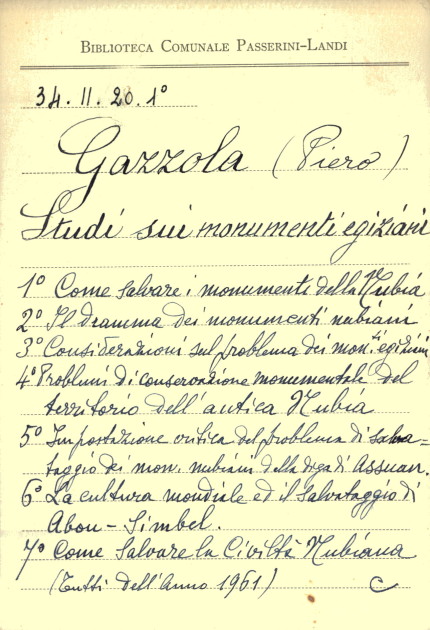 BIBLIOTECA COMUNALE PASSERINI-LANDI
34. II. 20. 1°
Gazzola (Piero)
Studi sui monumenti egiziani
1° Come salvare i monumenti della Nubia
2° Il dramma dei monumenti nubiani
3° Considerazioni sul problema dei mon.ti egiziani
4° Problemi di conservazione monumentale del
territorio dell'antica Nubia
5° Impostazione critica del problema di salva=
taggio dei mon. nubiani della diga di Assuan.
6° La cultura mondiale ed il salvataggio di
Abou-Simbel.
7° Come salvare la Civiltà Nubiana
(Tutti dell'Anno 1961) C